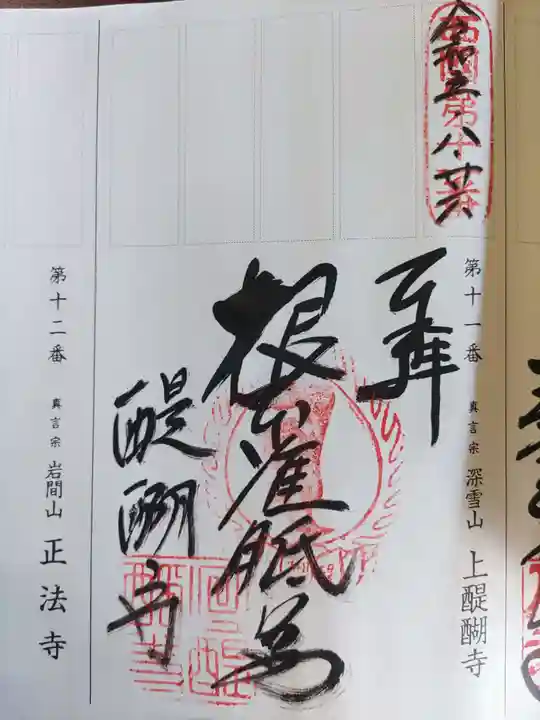 西国第十一番
令和五、八、廿六
第十一番 真言宗 深雪山 上醍醐寺
奉拝
根本准胝尊
醍醐寺
第十二番 真言宗 岩間山 正法寺